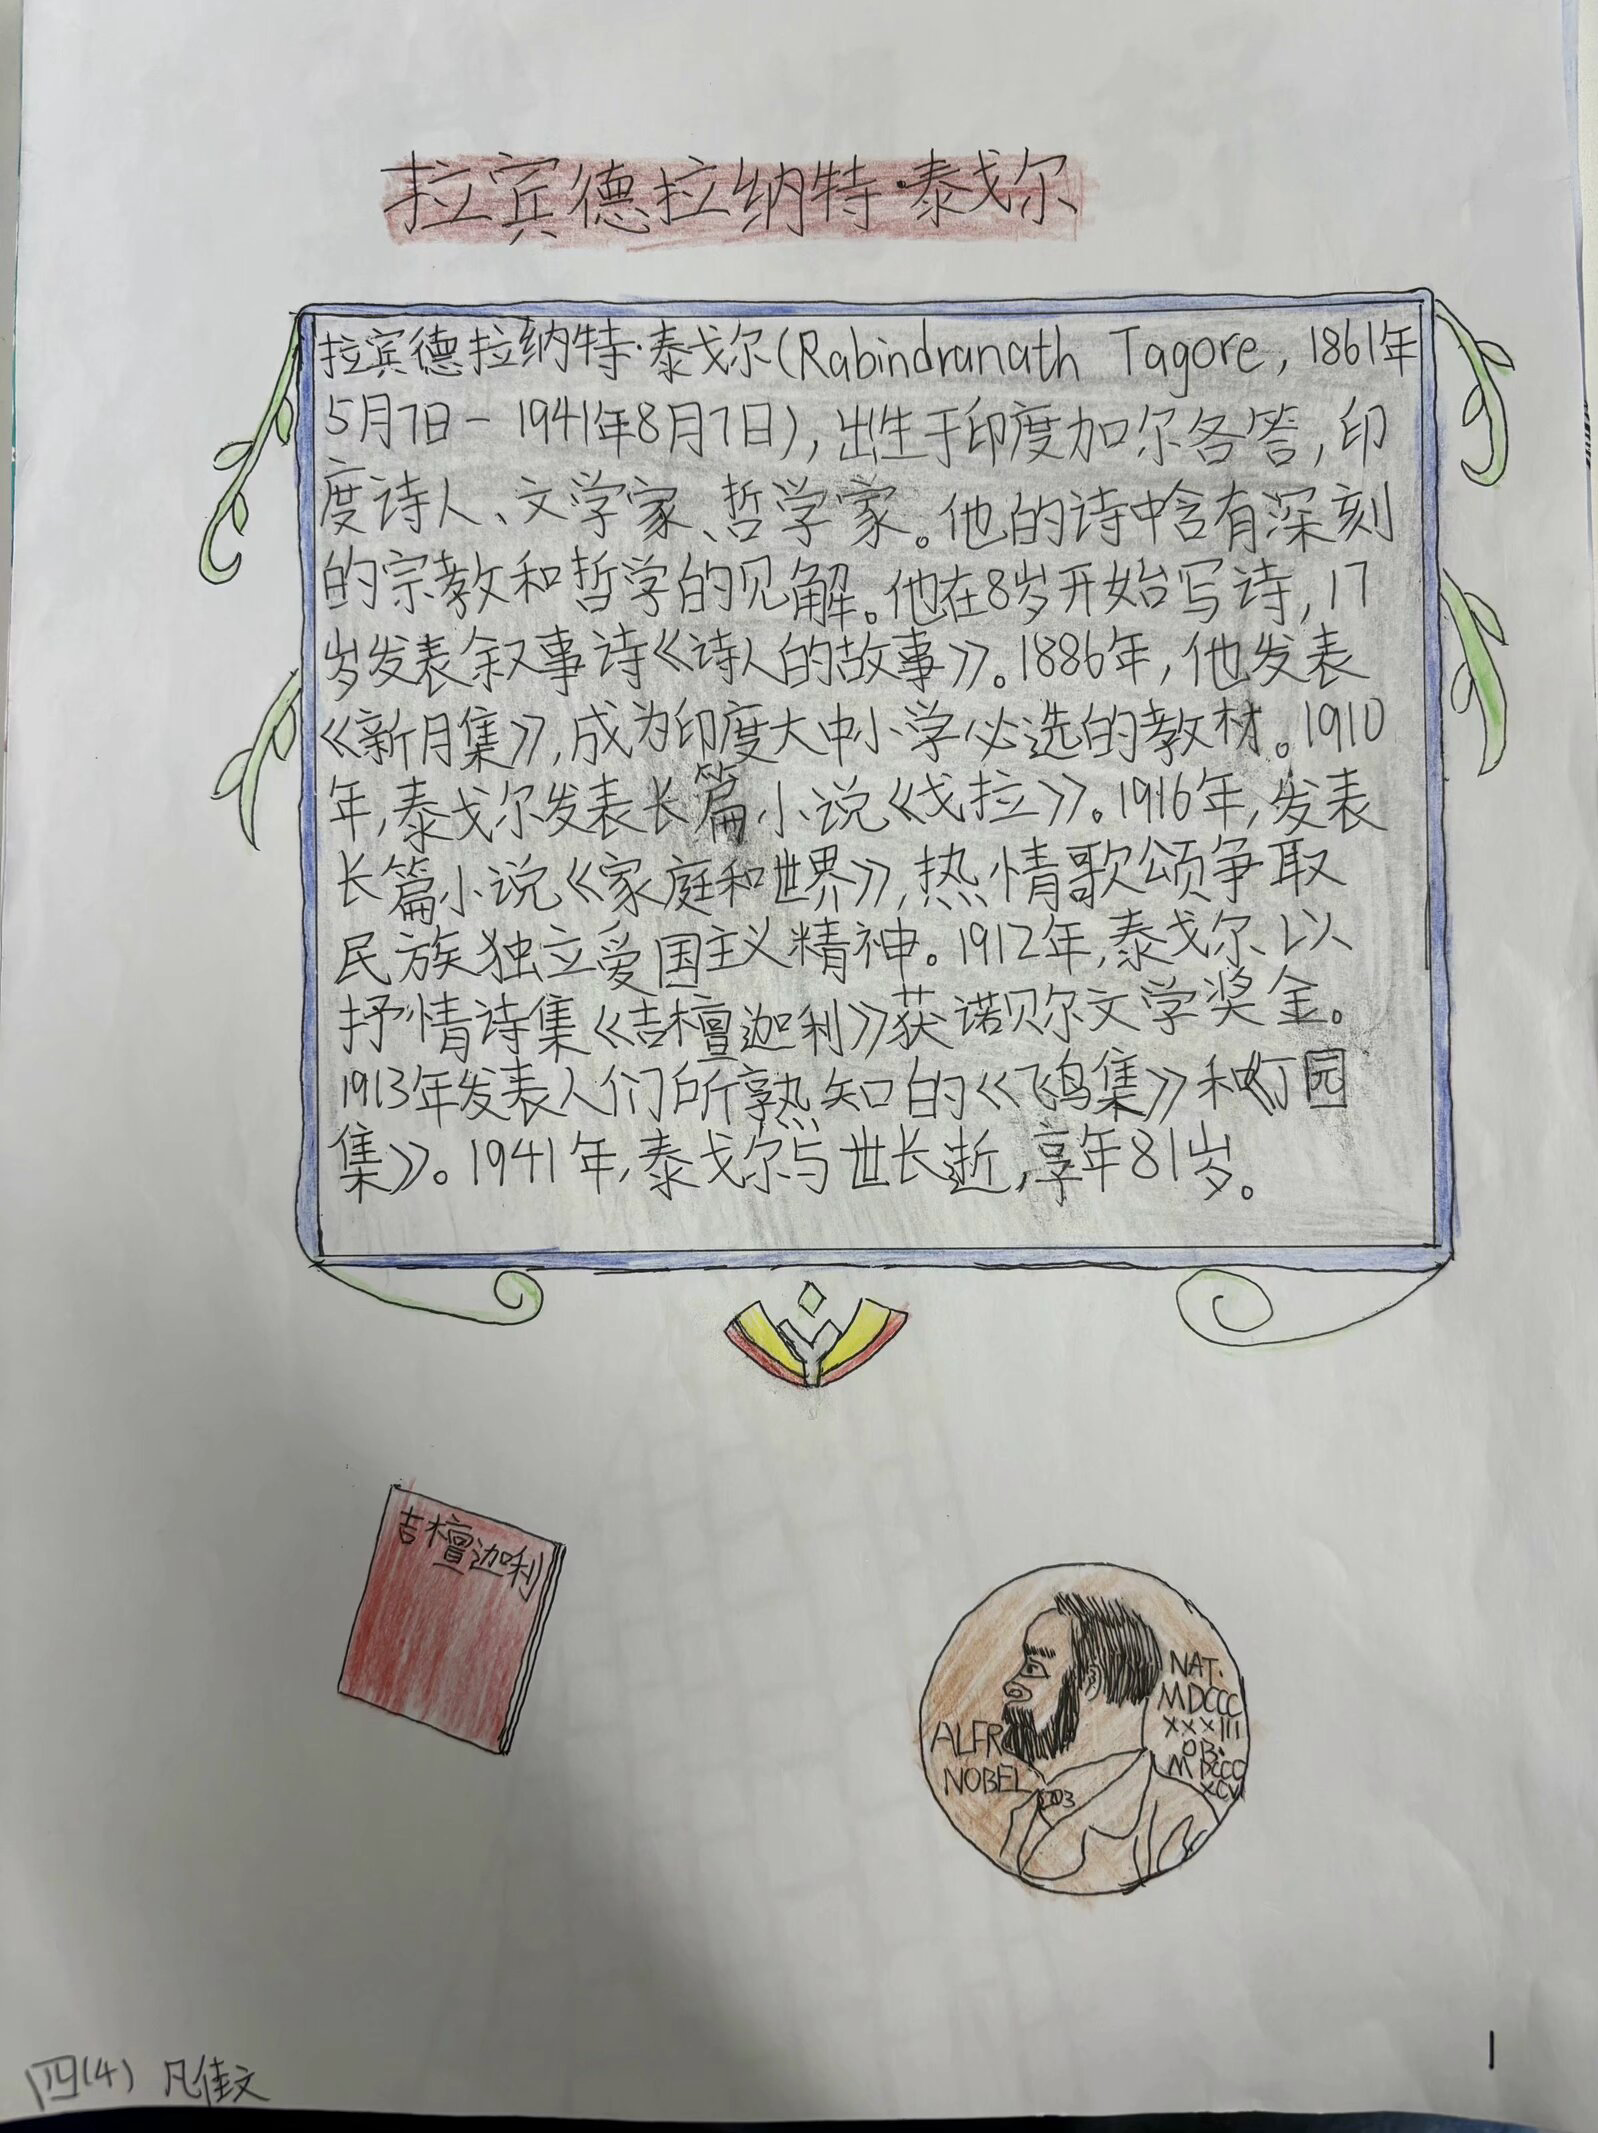 拉宾德拉纳特·泰戈尔
拉宾德拉纳特·泰戈尔(Rabindranath Tagore, 1861年
5月7日－1941年8月7日),出生于印度加尔各答,印
度诗人、文学家、哲学家。他的诗中含有深刻
的宗教和哲学的见解。他在8岁开始写诗,17
岁发表叙事诗《诗人的故事》。1886年,他发表
《新月集》,成为印度大中小学必选的教材。1910
年,泰戈尔发表长篇小说《戈拉》。1916年,发表
长篇小说《家庭和世界》,热情歌颂争取
民族独立爱国主义精神。1912年,泰戈尔以
抒情诗集《吉檀迦利》获诺贝尔文学奖金。
1913年发表人们所熟知的《飞鸟集》和《丁园
集》。1941年,泰戈尔与世长逝,享年81岁。
吉檀迦利
ALFR
NOBEL
NAT.
MDCCC
XXXIII
OB.
MDCCC
XCVI
四(4) 凡佳文
1